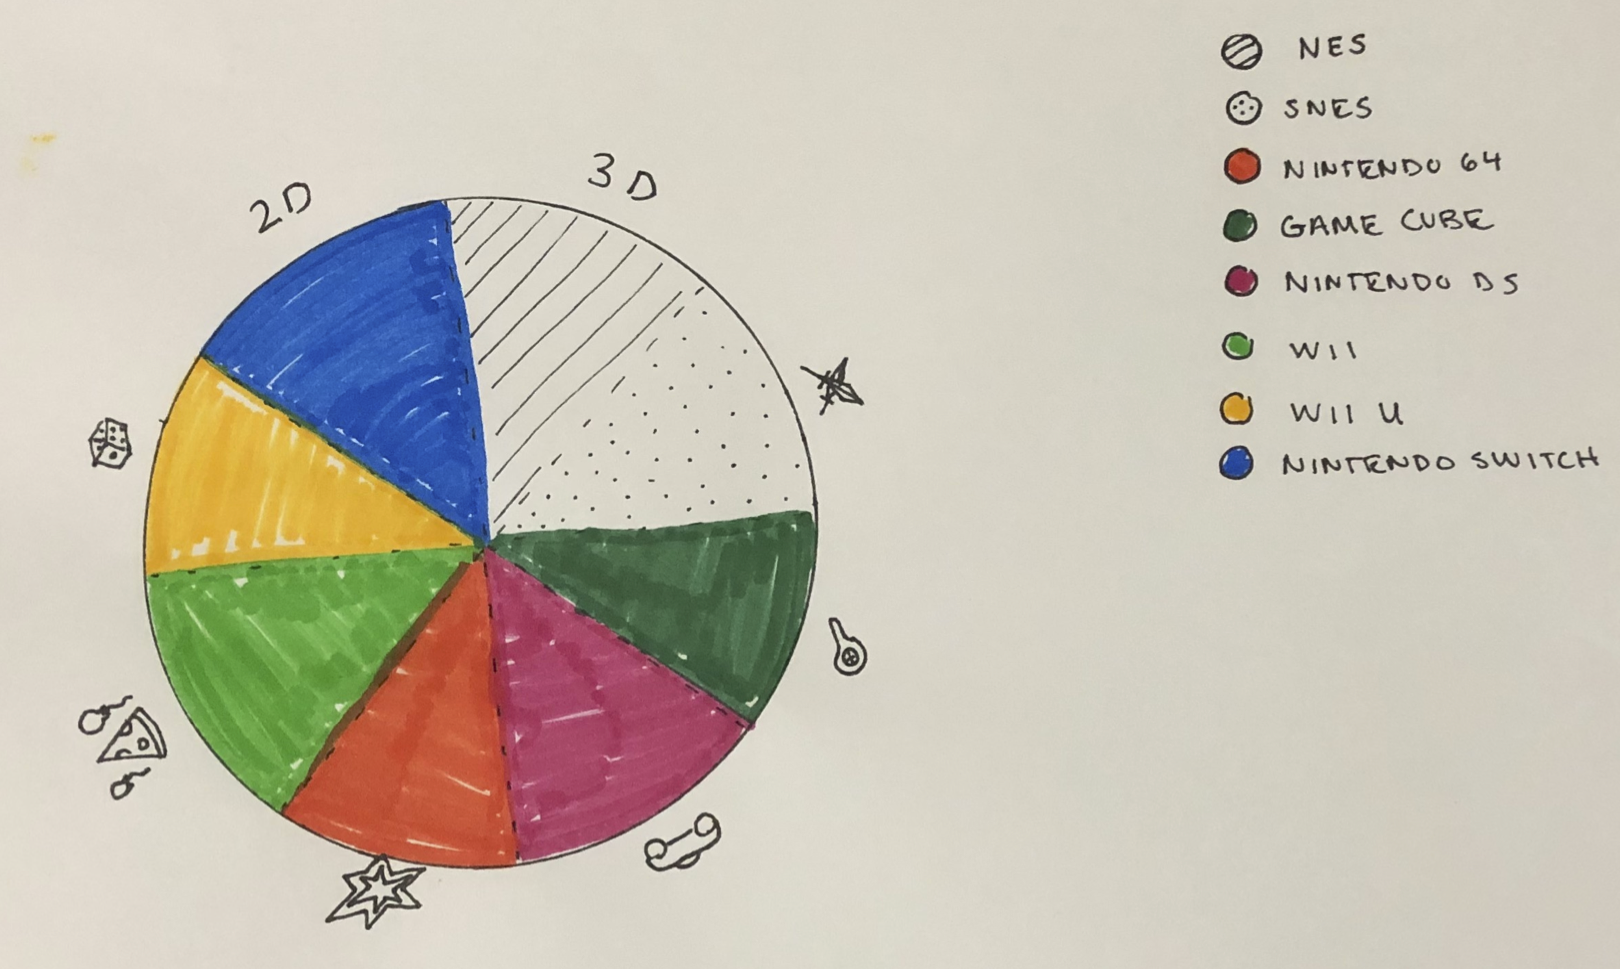 2D
3D
NES
SNES
NINTENDO 64
GAME CUBE
NINTENDO DS
WII
WII U
NINTENDO SWITCH